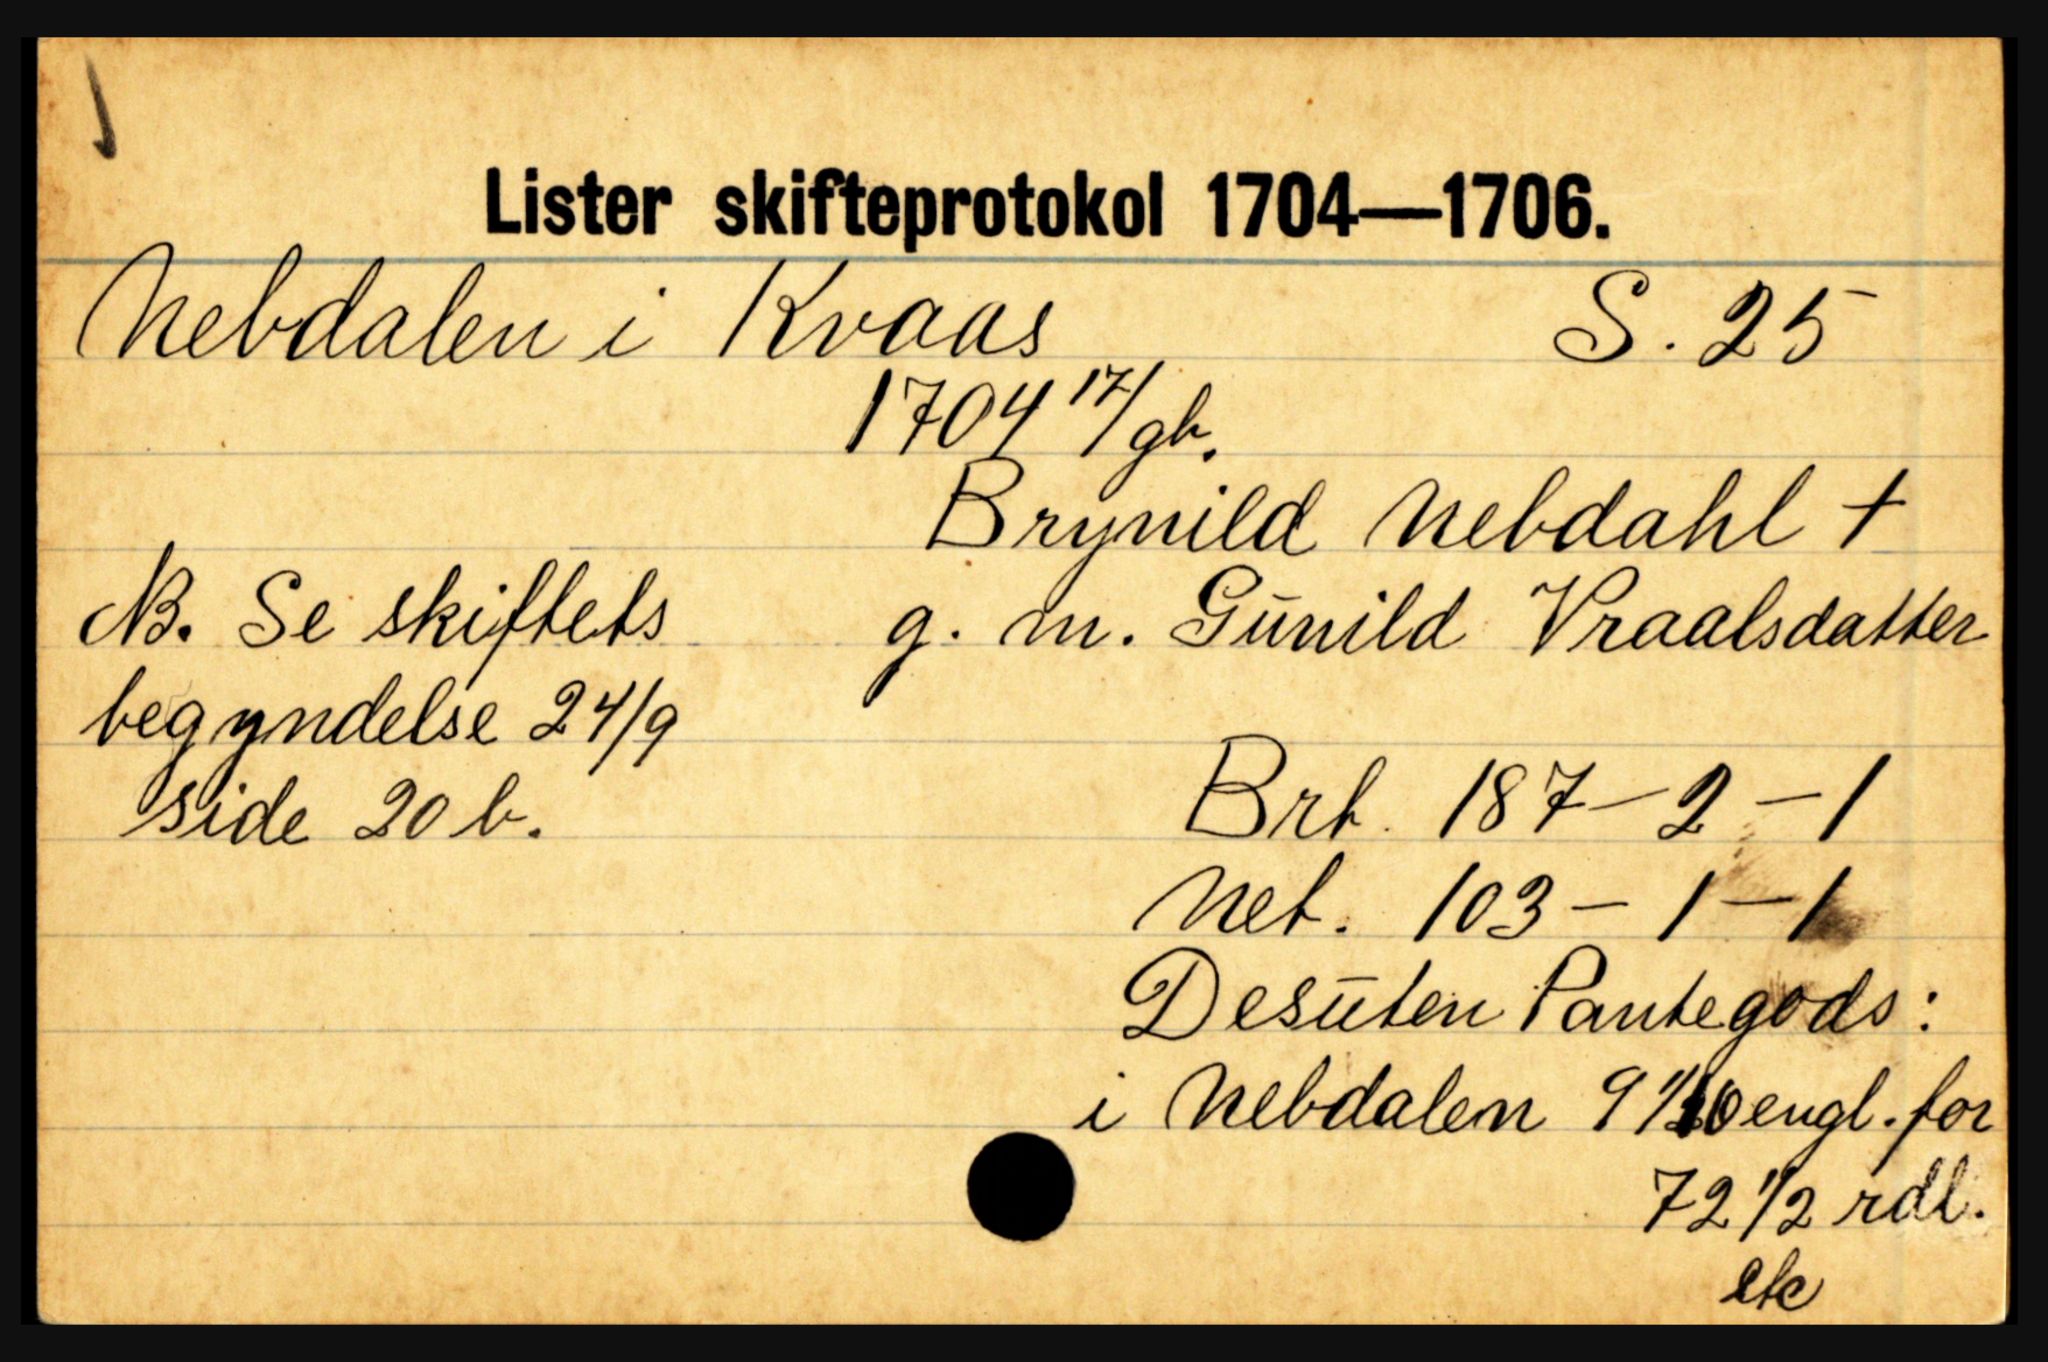 Lister skifteprotokol 1704—1706.
Nebdalen i Kvaas S. 25
1704 17/9b.
Brynild Nebdahl +
g. m. Gunild Vraalsdatter
NB. Se skiftets
begyndelse 24/9
side 20 b.
Brt. 187 – 2 – 1
Net. 103 – 1 – 1
Desuten Pantegods:
i Nebdalen 9 engl. for
72 1/2 rdl.
etc